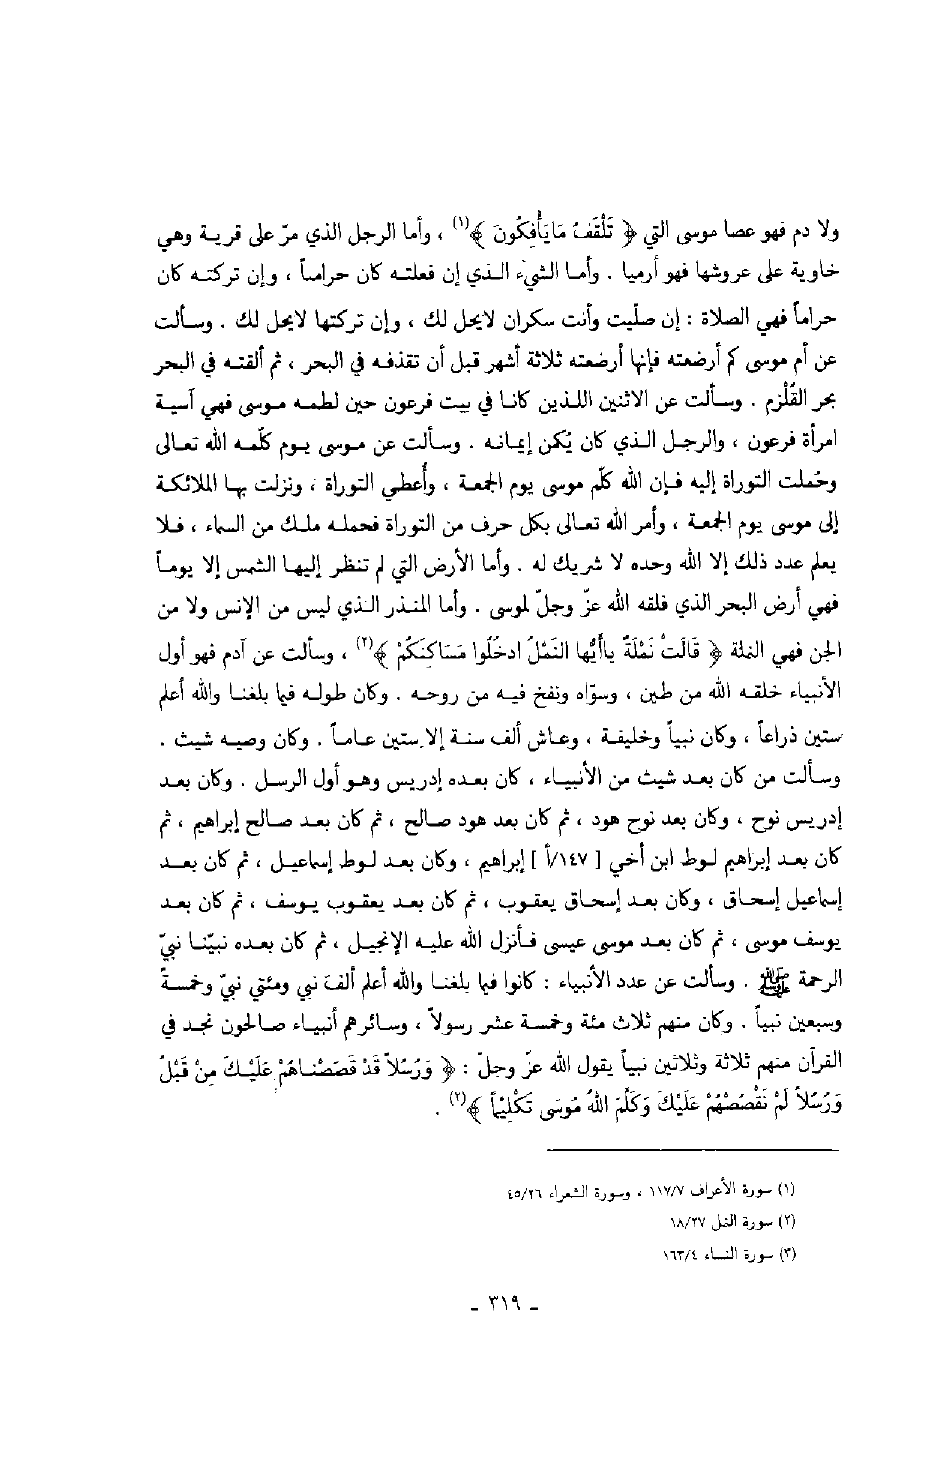 ولا دم فهو عصا موسى التي ﴿ تَلْقَفُ مَا يَأْفِكُونَ ﴾(١) ، وأما الرجل الذي مرّ على قرية وهي
خاوية على عروشها فهو أرميا . وأما الشيء الذي إن فعلته كان حراماً ، وإن تركته كان
حراماً فهي الصلاة : إن صليت وأنت سكران لايحل لك ، وإن تركتها لايحل لك . وسألت
عن أم موسى كم أرضعته فإنها أرضعته ثلاثة أشهر قبل أن تقذفه في البحر ، ثم ألقته في البحر
بحر القُلْزم . وسألت عن الاثنين اللذين كانا في بيت فرعون حين لطمه موسى فهي آسية
امرأة فرعون ، والرجل الذي كان يُكن إيمانه . وسألت عن موسى يوم كلّمه الله تعالى
وحُملت التوراة إليه فإن الله كلّم موسى يوم الجمعة ، وأُعطي التوراة ، ونزلت بها الملائكة
إلى موسى يوم الجمعة ، وأمر الله تعالى بكل حرف من التوراة فحمله ملك من السماء ، فلا
يعلم عدد ذلك إلا الله وحده لا شريك له . وأما الأرض التي لم تنظر إليها الشمس إلا يوماً
فهي أرض البحر الذي فلقه الله عزّ وجلّ لموسى . وأما المنذر الذي ليس من الإنس ولا من
الجن فهي النملة ﴿ قَالَتْ نَمْلَةٌ يَاأَيُّهَا النَّمْلُ ادخُلُوا مَسَاكِنَكُمْ ﴾(٢) ، وسألت عن آدم فهو أول
الأنبياء خلقه الله من طين ، وسوّاه ونفخ فيه من روحه . وكان طوله فيما بلغنا والله أعلم
ستين ذراعاً ، وكان نبياً وخليفة ، وعاش ألف سنة إلا ستين عاماً . وكان وصيه شيث .
وسألت من كان بعد شيث من الأنبياء ، كان بعده إدريس وهو أول الرسل . وكان بعد
إدريس نوح ، وكان بعد نوح هود ، ثم كان بعد هود صالح ، ثم كان بعد صالح إبراهيم ، ثم
كان بعد إبراهيم لوط ابن أخي [ ١٤٧/أ ] إبراهيم ، وكان بعد لوط إسماعيل ، ثم كان بعد
إسماعيل إسحاق ، وكان بعد إسحاق يعقوب ، ثم كان بعد يعقوب يوسف ، ثم كان بعد
يوسف موسى ، ثم كان بعد موسى عيسى فأنزل الله عليه الإنجيل ، ثم كان بعده نبيّنا نبيّ
الرحمة ﷺ . وسألت عن عدد الأنبياء : كانوا فيما بلغنا والله أعلم ألف نبي ومئتي نبيّ وخمسةً
وسبعين نبياً . وكان منهم ثلاث مئة وخمسة عشر رسولاً ، وسائرهم أنبياء صالحون نجد في
القرآن منهم ثلاثة وثلاثين نبياً يقول الله عزّ وجلّ : ﴿ وَرُسُلاً قَدْ قَصَصْنَاهُمْ عَلَيْكَ مِنْ قَبْلُ
وَرُسُلاً لَمْ نَقْصُصْهُمْ عَلَيْكَ وَكَلَّمَ اللهُ مُوسَى تَكْلِيمًا ﴾(٣) .
(١) سورة الأعراف ١١٧/٧ ، وسورة الشعراء ٤٥/٢٦
(٢) سورة النمل ١٨/٢٧
(٣) سورة النساء ١٦٣/٤
ـ ٣١٩ ـ